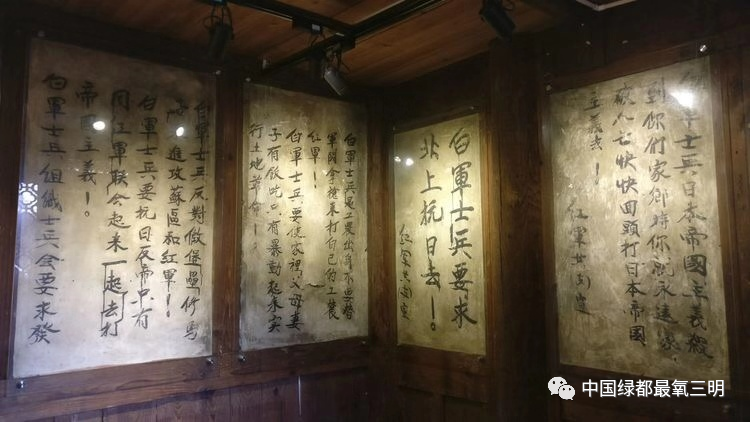 白軍士兵日本帝國主義殺
到你們家鄉時你就永遠家
破人亡快快回頭打日本帝國
主義去！
红軍
白軍士兵要求
北上抗日去！
紅軍
白軍士兵是工農出身不要替
軍閥拿槍来打自己的工農
紅軍！
白軍士兵要使家裡父母妻
子有飯吃只有暴動起来实
行土地革命！
白軍士兵反對做堡壘修馬
路進攻蘇區和紅軍！
白軍士兵要抗日反帝只有
同紅軍联合起来一起去打
帝國主義！
白軍士兵組織士兵会要求發
中国绿都最氧三明